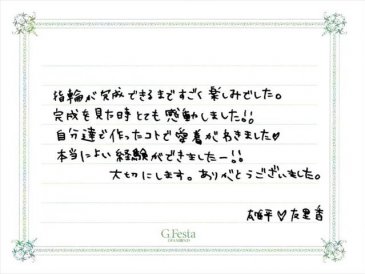 指輪が完成できるまですごく楽しみでした。
完成を見た時とても感動しました!!
自分達で作ったコトで愛着がわきました♡
本当によい経験ができましたー!!
大切にします。ありがとうございました。
友里香
G.Festa